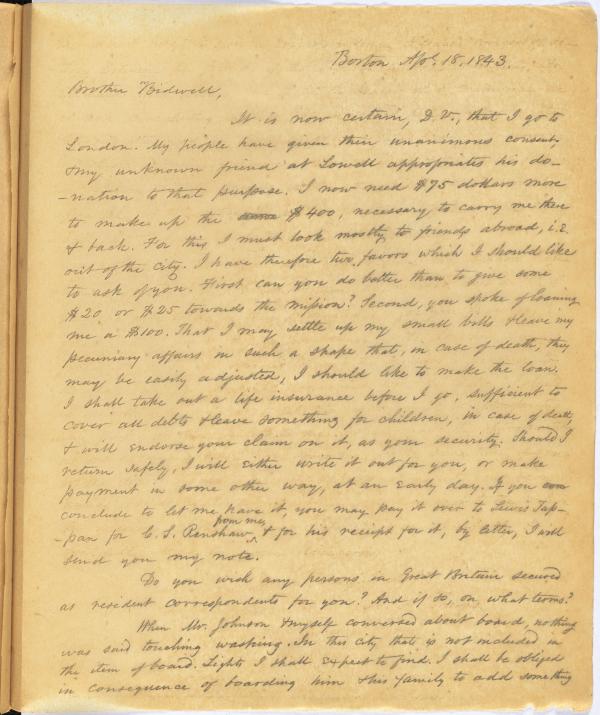 Boston Apl. 18, 1843.
Brother Bidwell,
It is now certain, D.V., that I go to
London. My people have given their unanimous consent,
& my unknown friend at Lowell appropriates his do-
-nation to that purpose. I now need $75 dollars more
to make up the $400, necessary to carry me there
& back. For this I must look mostly to friends abroad, i.e.
out of the city. I have therefore two favors which I should like
to ask of you. First can you do better than to give some
$20 or $25 towards the mission? Second, you spoke of loaning
me a $100. That I may settle up my small bills & leave my
pecuniary affairs in such a shape that, in case of death, they
may be easily adjusted, I should like to make the loan.
I shall take out a life insurance before I go, sufficient to
cover all debts & leave something for children, in case of death,
& will endorse your claim on it, as your security. Should I
return safely, I will either write it out for you, or make
payment in some other way, at an early day. If you
conclude to let me have it, you may pay it over to Lewis Tap-
from me,
-pan for C. S. Renshaw, & for his receipt for it, by letter, I will
send you my note.
Do you wish any persons in Great Britain secured
as resident correspondents for you? And if so, on what terms?
When Mr. Johnson & myself conversed about board, nothing
was said touching washing. In this city that is not included in
the item of board. Lights I shall expect to find. I shall be obliged
in consequence of boarding him & his family to add something